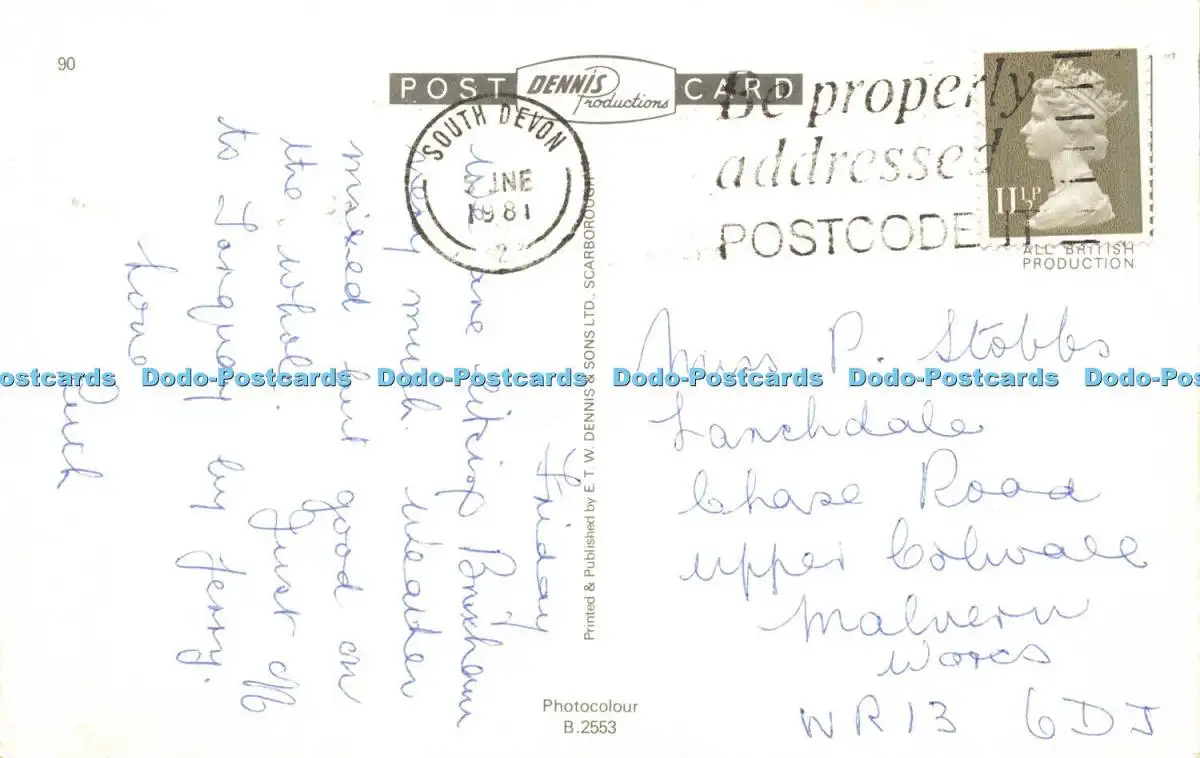 90
POST DENNIS Productions CARD
SOUTH DEVON
JNE
1981
2
Be properly
addressed
POSTCODE IT
11½P
ALL BRITISH
PRODUCTION
Friday
We are liking Brixham
very much. Weather
mixed but good on
the whole. Just off
to Torquay by ferry.
Love
Ruth
Printed & Published by E. T. W. DENNIS & SONS LTD., SCARBOROUGH
Miss P. Stobbs
Lanchdale
Chase Road
Upper Colwall
Malvern
Worcs
WR13 6DJ
Photocolour
B.2553
Dodo-Postcards Dodo-Postcards Dodo-Postcards Dodo-Postcards Dodo-Postcards Dodo-Postcards